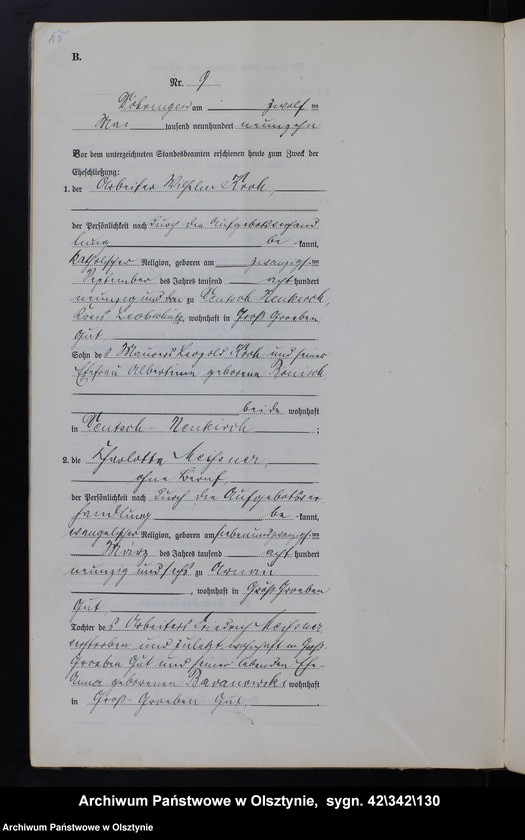 B.
Nr. 9
Döhringen am zwölf ten
Mai tausend neunhundert neunzehn
Vor dem unterzeichneten Standesbeamten erschienen heute zum Zweck der
Eheschließung:
1. der Arbeiter Wilhelm Kroh,
der Persönlichkeit nach durch die Aufgebotsverhand
lung be kannt,
katholischer Religion, geboren am zwanzigsten
September des Jahres tausend acht hundert
neunzig und drei zu Deutsch Neukirch,
Kreis Leobschütz, wohnhaft in Groß Groeben
Gut,
Sohn des Maurers Leopold Kroh und seiner
Ehefrau Albertine geborene
beide wohnhaft
in Deutsch-Neukirch ;
2. die Charlotte Meißner,
ohne Beruf,
der Persönlichkeit nach durch die Aufgebotsver
handlung be kannt,
evangelischer Religion, geboren am siebenundzwanzigsten
März des Jahres tausend acht hundert
neunzig und sechs zu Arnau
, wohnhaft in Groß Groeben
Gut,
Tochter des Arbeiters Friedrich Meißner
verstorben und zuletzt wohnhaft in Groß-
Groeben Gut und seiner lebenden Ehe-
geborenen Baranowski wohnhaft
in Groß-Groeben Gut.
Archiwum Państwowe w Olsztynie, sygn. 42\342\130
Archiwum Państwowe w Olsztynie